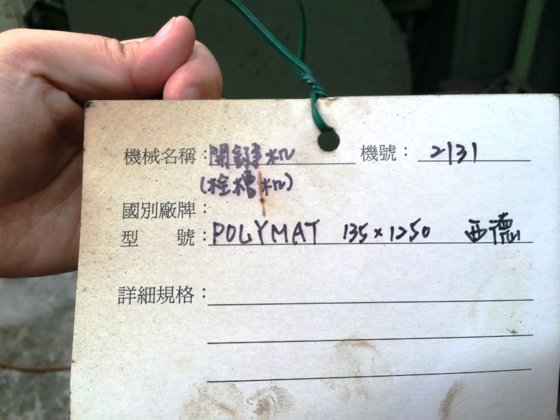 機械名稱：開鍵机 機號：2131
(栓槽机)
國別廠牌：
型 號：POLYMAT 135×1250 西德
詳細規格：